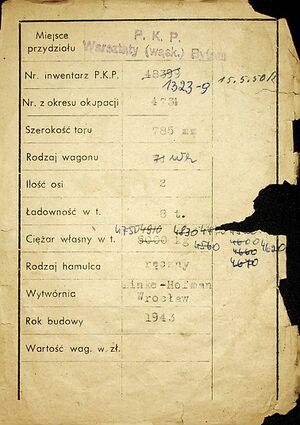 Miejsce przydziału P. K. P.
Warsztaty (wąsk.) Bytom
Nr. inwentarz P.K.P. 48399 15.5.50 r.
1323-9
Nr. z okresu okupacji 4731
Szerokość toru 785 mm
Rodzaj wagonu
Ilość osi 2
Ładowność w t. 8 t.
4750 4910 4830
Ciężar własny w t. 5000 kg 4560 4600 4620
4660
4670
Rodzaj hamulca ręczny
Wytwórnia Linke-Hofman
Wrocław
Rok budowy 1943
Wartość wag. w zł.